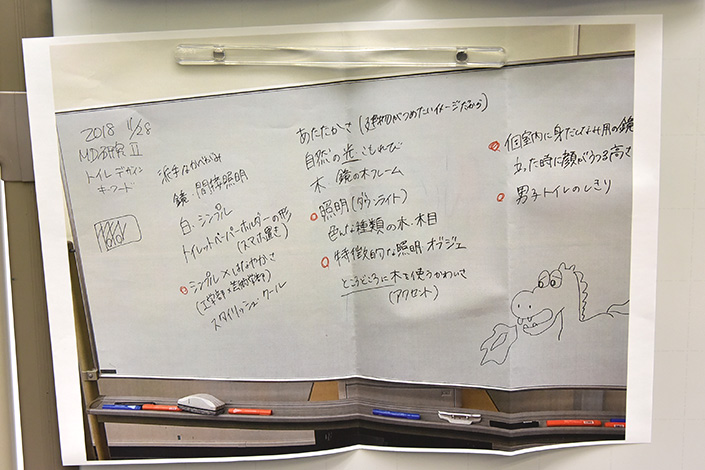 2018 11/28
MD研究 II
トイレデザイン
キーワード
派手なかべがみ
鏡・間接照明
白・シンプル
トイレットペーパーホルダーの形
(スマホ置き)
シンプル×はなやかさ
(工学部×芸術学部)
スタイリッシュ クール
あたたかさ (建物がつめたいイメージだから)
自然の光 こもれび
木 鏡の木フレーム
照明 (ダウンライト)
色んな種類の木、木目
特徴的な照明 オブジェ
ところどころに木を使う かわいさ
(アクセント)
個室内に身だしなみ用の鏡
立った時に顔がうつる高さ
男子トイレのしきり